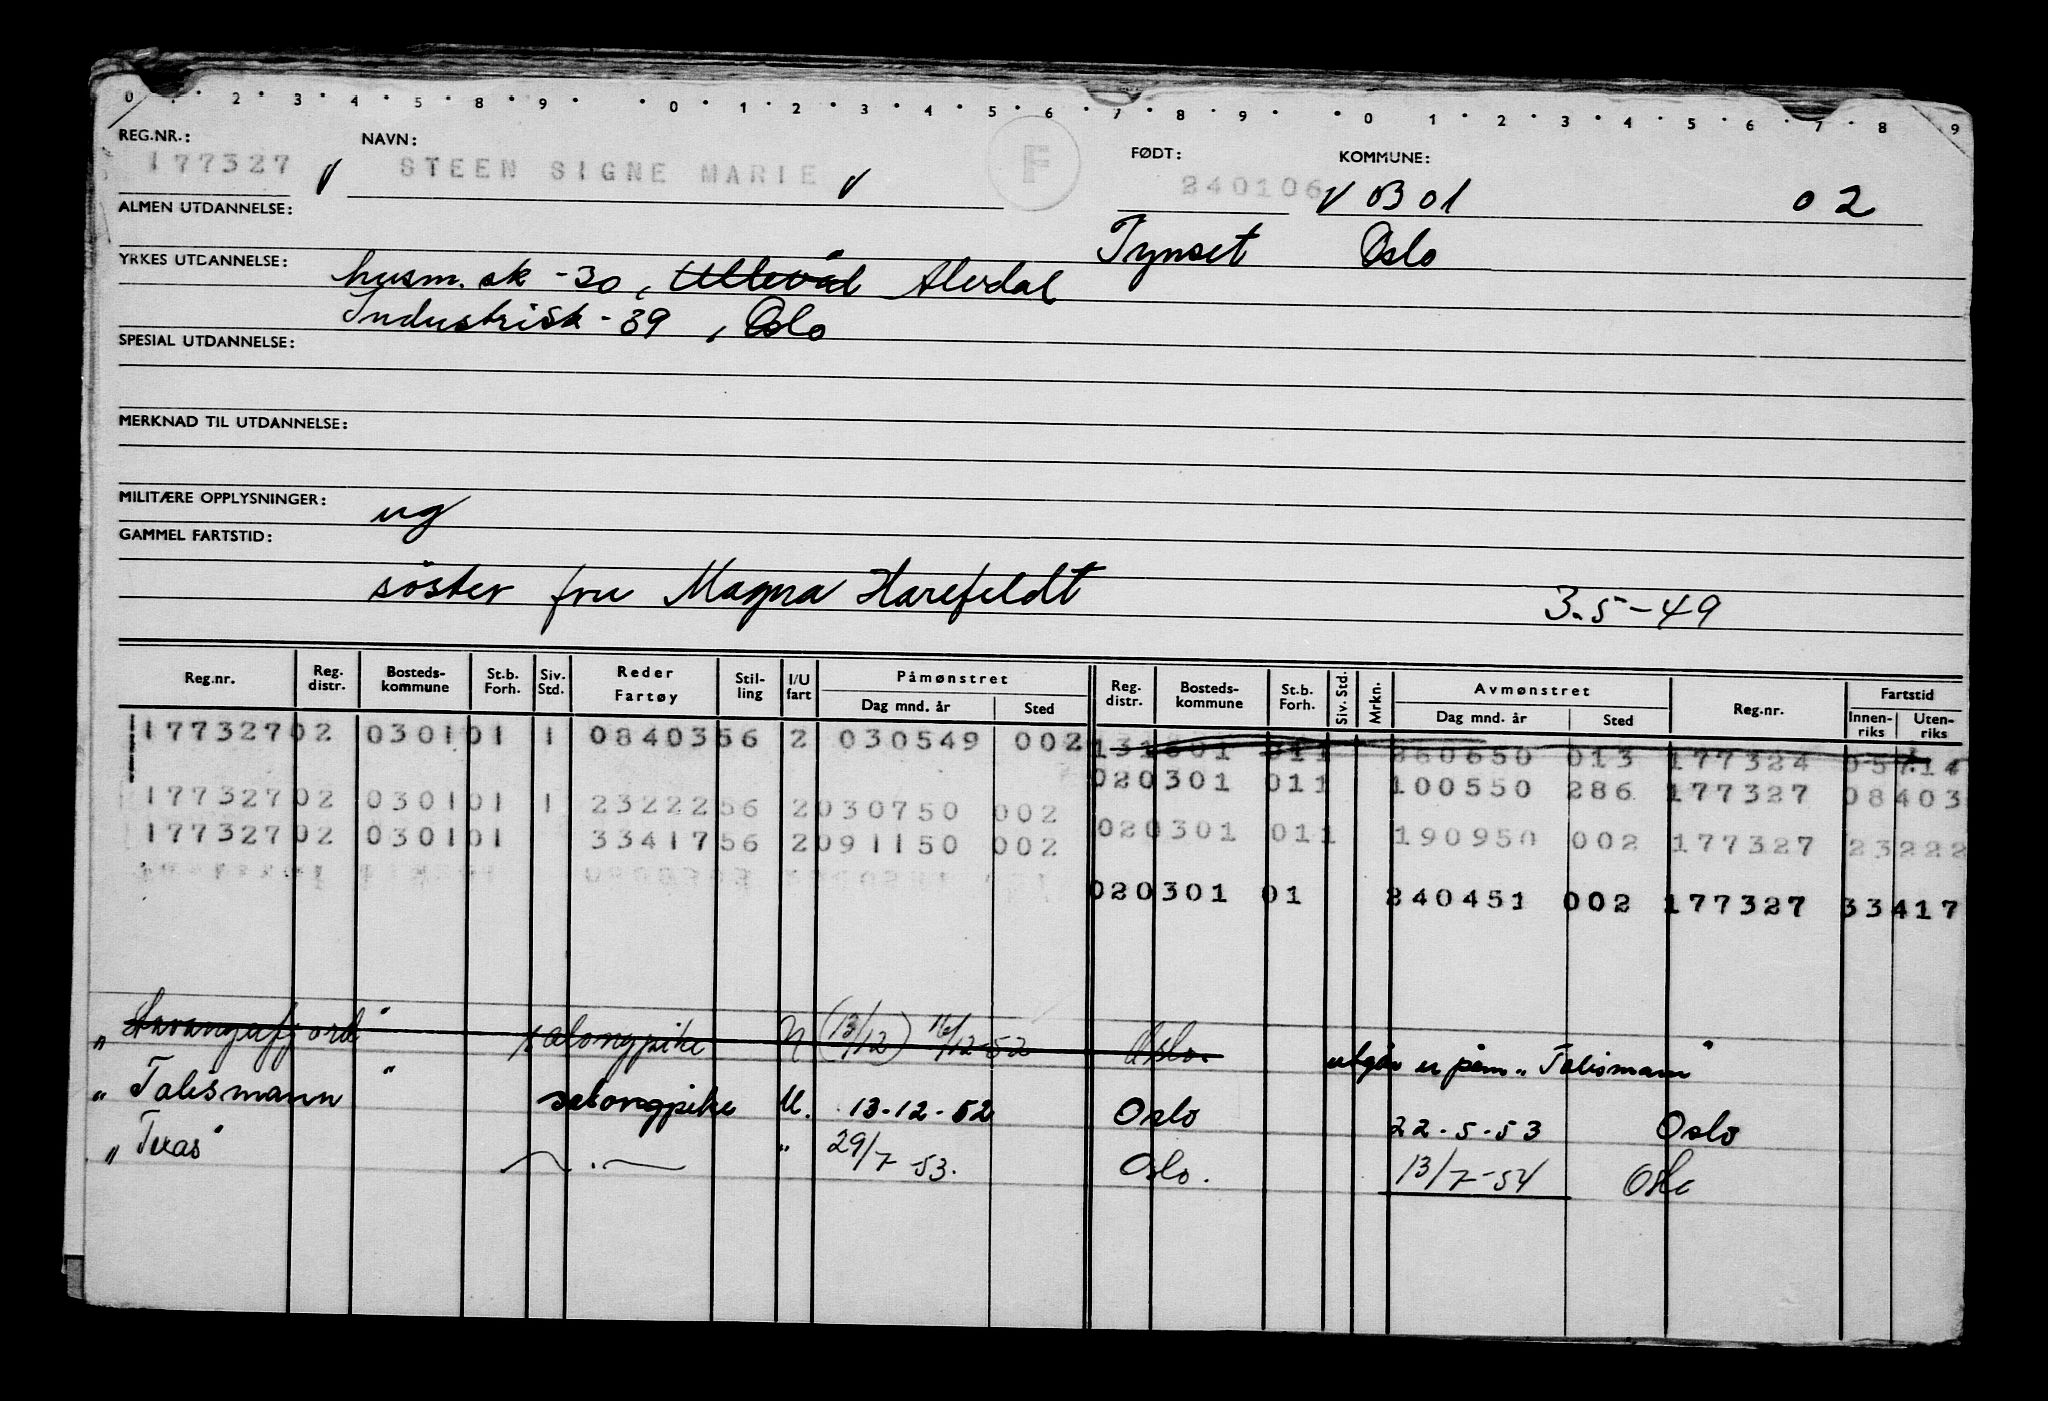 0 · · 2 · 3 · 4 · 5 · 8 · 9 · · 0 · 1 · 2 · 3 · 4 · 5 · 6 · 7 · 8 · 9 · · 0 · 1 · 2 · 3 · 4 · 5 · 6 · 7 · 8 · 9
REG.NR.: NAVN: FØDT: KOMMUNE:
177327 V STEEN SIGNE MARIE V F 240106 V 0301 02
ALMEN UTDANNELSE: Tynset Oslo
YRKES UTDANNELSE: husm. sk -30, Ullevål Alvdal
Industrisk - 39 , Oslo
SPESIAL UTDANNELSE:
MERKNAD TIL UTDANNELSE:
MILITÆRE OPPLYSNINGER: ug
GAMMEL FARTSTID:
söster fru Magna Harefeldt 3.5-49
Reg.nr. Reg. distr. Bosteds-kommune St.b. Forh. Siv. Std. Reder Fartøy Stil-ling I/U fart Påmønstret Dag mnd. år Sted Reg. distr. Bosteds-kommune St.b. Forh. Siv. Std. Mrkn. Avmønstret Dag mnd. år Sted Reg.nr. Fartstid Innen-riks Uten-riks
177327 02 0301 01 1 08403 56 2 030549 002 131601 011 260650 013 177324 05714
020301 011 100550 286 177327 08403
177327 02 0301 01 1 23222 56 2 030750 002
020301 011 190950 002 177327 23222
177327 02 0301 01 33417 56 2 091150 002
020301 01 240451 002 177327 33417
" Stavangerfjord " salongpike N (13/12) 16/12-52 Oslo. utgår er påm " Talismann "
" Talismann " salongpike U. 13-12-52 Oslo 22-5-53 Oslo
" Texas " — . — " 29/7-53. Oslo. 13/7-54 Oslo